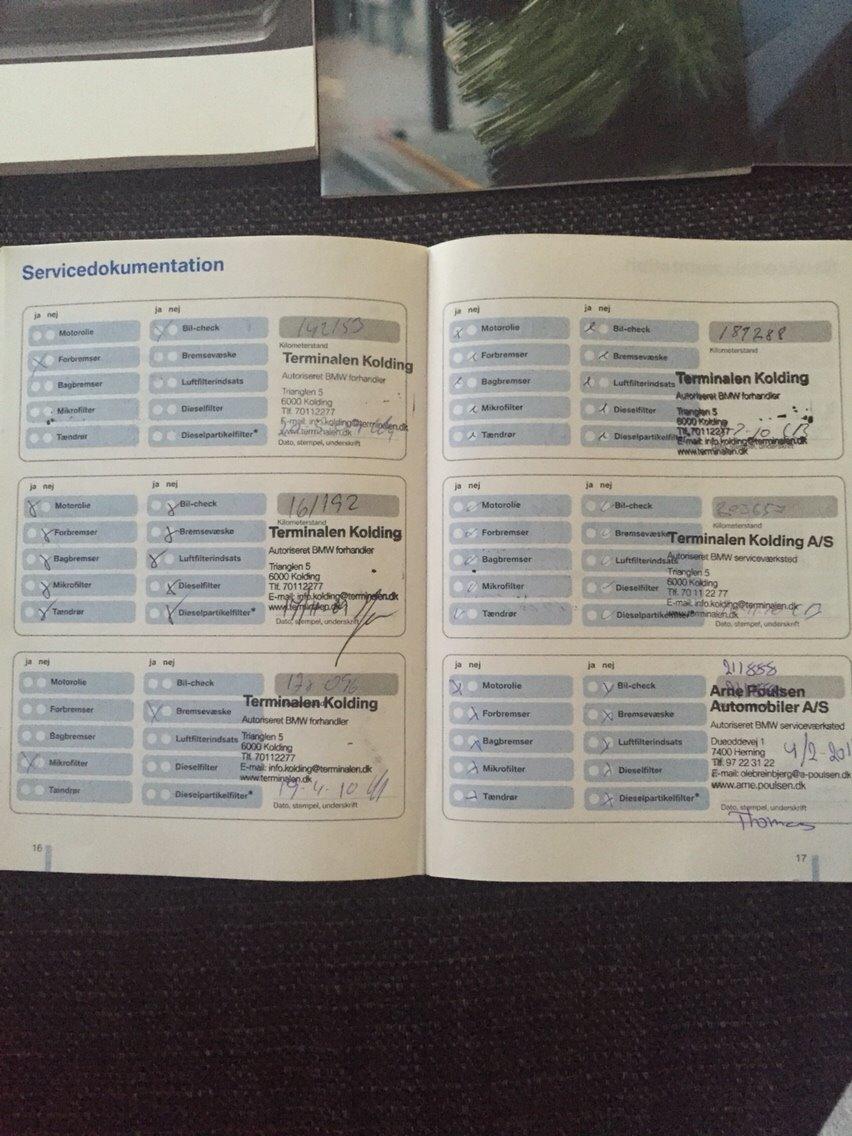 Servicedokumentation
ja nej
ja nej
Motorolie
Bil-check
142153
Forbremser
Bremsevæske
Kilometerstand
Bagbremser
Luftfilterindsats
Mikrofilter
Dieselfilter
Tændrør
Dieselpartikelfilter*
Terminalen Kolding
Autoriseret BMW forhandler
Trianglen 5
6000 Kolding
Tlf. 70112277
E-mail: info.kolding@terminalen.dk
www.terminalen.dk
Dato, stempel, underskrift
ja nej
ja nej
Motorolie
Bil-check
161192
Forbremser
Bremsevæske
Kilometerstand
Bagbremser
Luftfilterindsats
Mikrofilter
Dieselfilter
Tændrør
Dieselpartikelfilter*
Terminalen Kolding
Autoriseret BMW forhandler
Trianglen 5
6000 Kolding
Tlf. 70112277
E-mail: info.kolding@terminalen.dk
www.terminalen.dk
Dato, stempel, underskrift
ja nej
ja nej
Motorolie
Bil-check
178096
Forbremser
Bremsevæske
Bagbremser
Luftfilterindsats
Mikrofilter
Dieselfilter
Tændrør
Dieselpartikelfilter*
Terminalen Kolding
Autoriseret BMW forhandler
Trianglen 5
6000 Kolding
Tlf. 70112277
E-mail: info.kolding@terminalen.dk
www.terminalen.dk
19-4-10
Dato, stempel, underskrift
16
ja nej
ja nej
Motorolie
Bil-check
189288
Forbremser
Bremsevæske
Kilometerstand
Bagbremser
Luftfilterindsats
Mikrofilter
Dieselfilter
Tændrør
Dieselpartikelfilter
Terminalen Kolding
Autoriseret BMW forhandler
Trianglen 5
6000 Kolding
Tlf. 70112277
E-mail: info.kolding@terminalen.dk
www.terminalen.dk
ja nej
ja nej
Motorolie
Bil-check
203657
Forbremser
Bremsevæske
Kilometerstand
Bagbremser
Luftfilterindsats
Mikrofilter
Dieselfilter
Tændrør
Dieselpartikelfilter
Terminalen Kolding A/S
Autoriseret BMW serviceværksted
Trianglen 5
6000 Kolding
Tlf. 70 11 22 77
E-mail: info.kolding@terminalen.dk
www.terminalen.dk
Dato, stempel, underskrift
ja nej
ja nej
211888
Motorolie
Bil-check
Forbremser
Bremsevæske
Bagbremser
Luftfilterindsats
Mikrofilter
Dieselfilter
Tændrør
Dieselpartikelfilter*
Arne Poulsen
Automobiler A/S
Autoriseret BMW serviceværksted
Dueoddevej 1
7400 Herning
Tlf. 97 22 31 22
E-mail: olebreinbjerg@a-poulsen.dk
www.arne.poulsen.dk
4/2-201
Dato, stempel, underskrift
Thomas
17